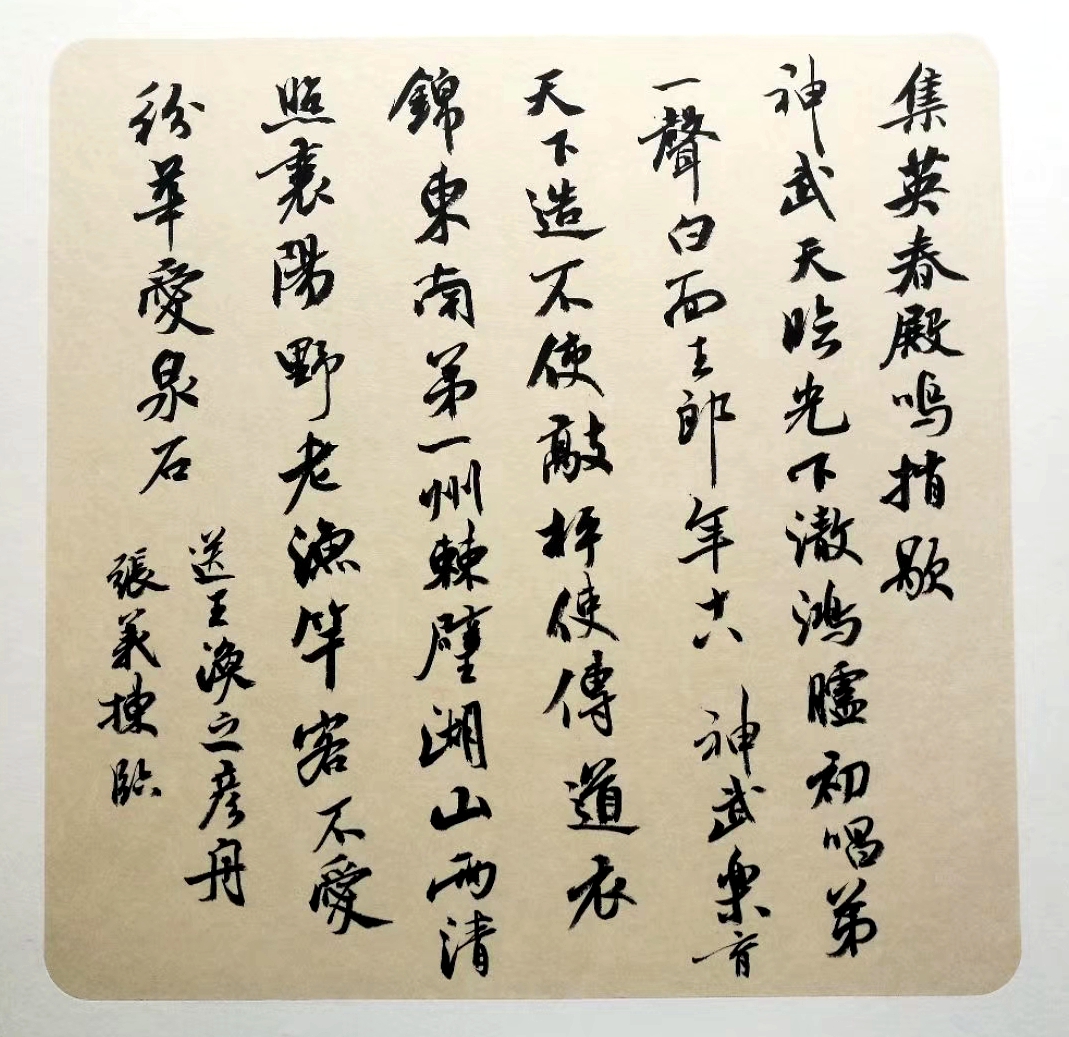 集英春殿鳴捎歇
神武天臨光下澈鴻臚初唱第
一聲白面玉郎年十六神武樂育
天下造不使敲枰使傳道衣
錦東南第一州棘壁湖山兩清
照襄陽野老漁竿客不愛
紛華愛泉石
送王渙之彥舟
張義棟臨